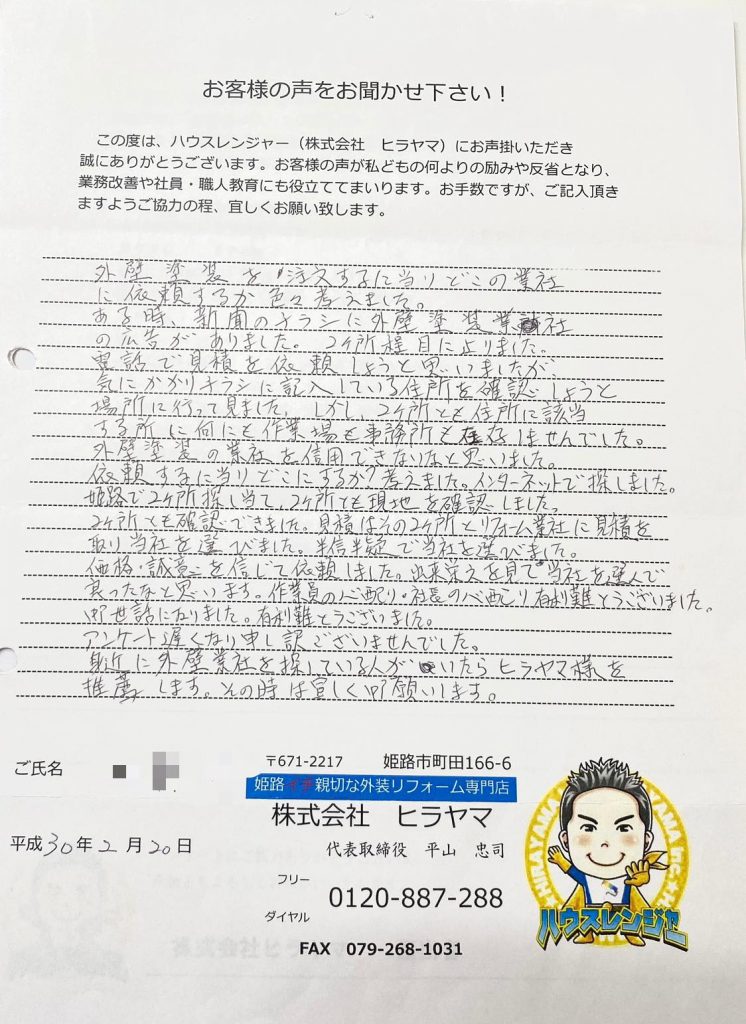 お客様の声をお聞かせ下さい！
この度は、ハウスレンジャー（株式会社　ヒラヤマ）にお声掛いただき
誠にありがとうございます。お客様の声が私どもの何よりの励みや反省となり、
業務改善や社員・職人教育にも役立ててまいります。お手数ですが、ご記入頂き
ますようご協力の程、宜しくお願い致します。
外壁塗装を注文するに当りどこの業社
に依頼するか色々考えました。
ある時、新聞のチラシに外壁塗装業社
の広告がありました。2ヶ所程目に止りました。
電話で見積を依頼しようと思いましたが、
気にかかりチラシに記入している住所を確認しようと
場所に行って見ました。しかし、2ヶ所とも住所に該当
する所に何にも作業場も事務所も在存しませんでした。
外壁塗装の業社を信用できないなと思いました。
依頼するに当りどこにするか？考えました。インターネットで探しました。
姫路で2ヶ所探し当て、2ヶ所とも現地を確認しました。
2ヶ所とも確認できました。見積はその2ヶ所とリフォーム業社に見積を
取り当社を選びました。半信半疑で当社を選びました。
価格・誠意を信じて依頼しました。出来栄えを見て当社を選んで
良ったなと思います。作業員の心配り・社長の心配り有利難とうございました。
御世話になりました。有利難とうございました。
アンケート遅くなり申し訳ございませんでした。
身近に外壁業社を探している人がいたらヒラヤマ様を
推薦します。その時は宜しく御願いします。
ご氏名
〒671-2217　姫路市町田166-6
姫路イチ親切な外装リフォーム専門店
株式会社　ヒラヤマ
平成30年2月20日
代表取締役　平山　忠司
フリー
ダイヤル
0120-887-288
FAX　079-268-1031
HIRAYAMA
ハウスレンジャー